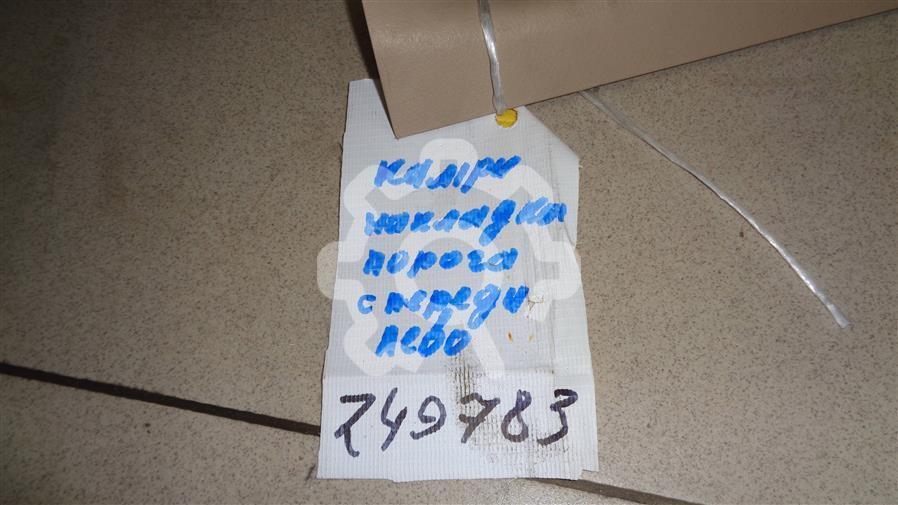 камри
накладка
порога
спереди
лево
249783